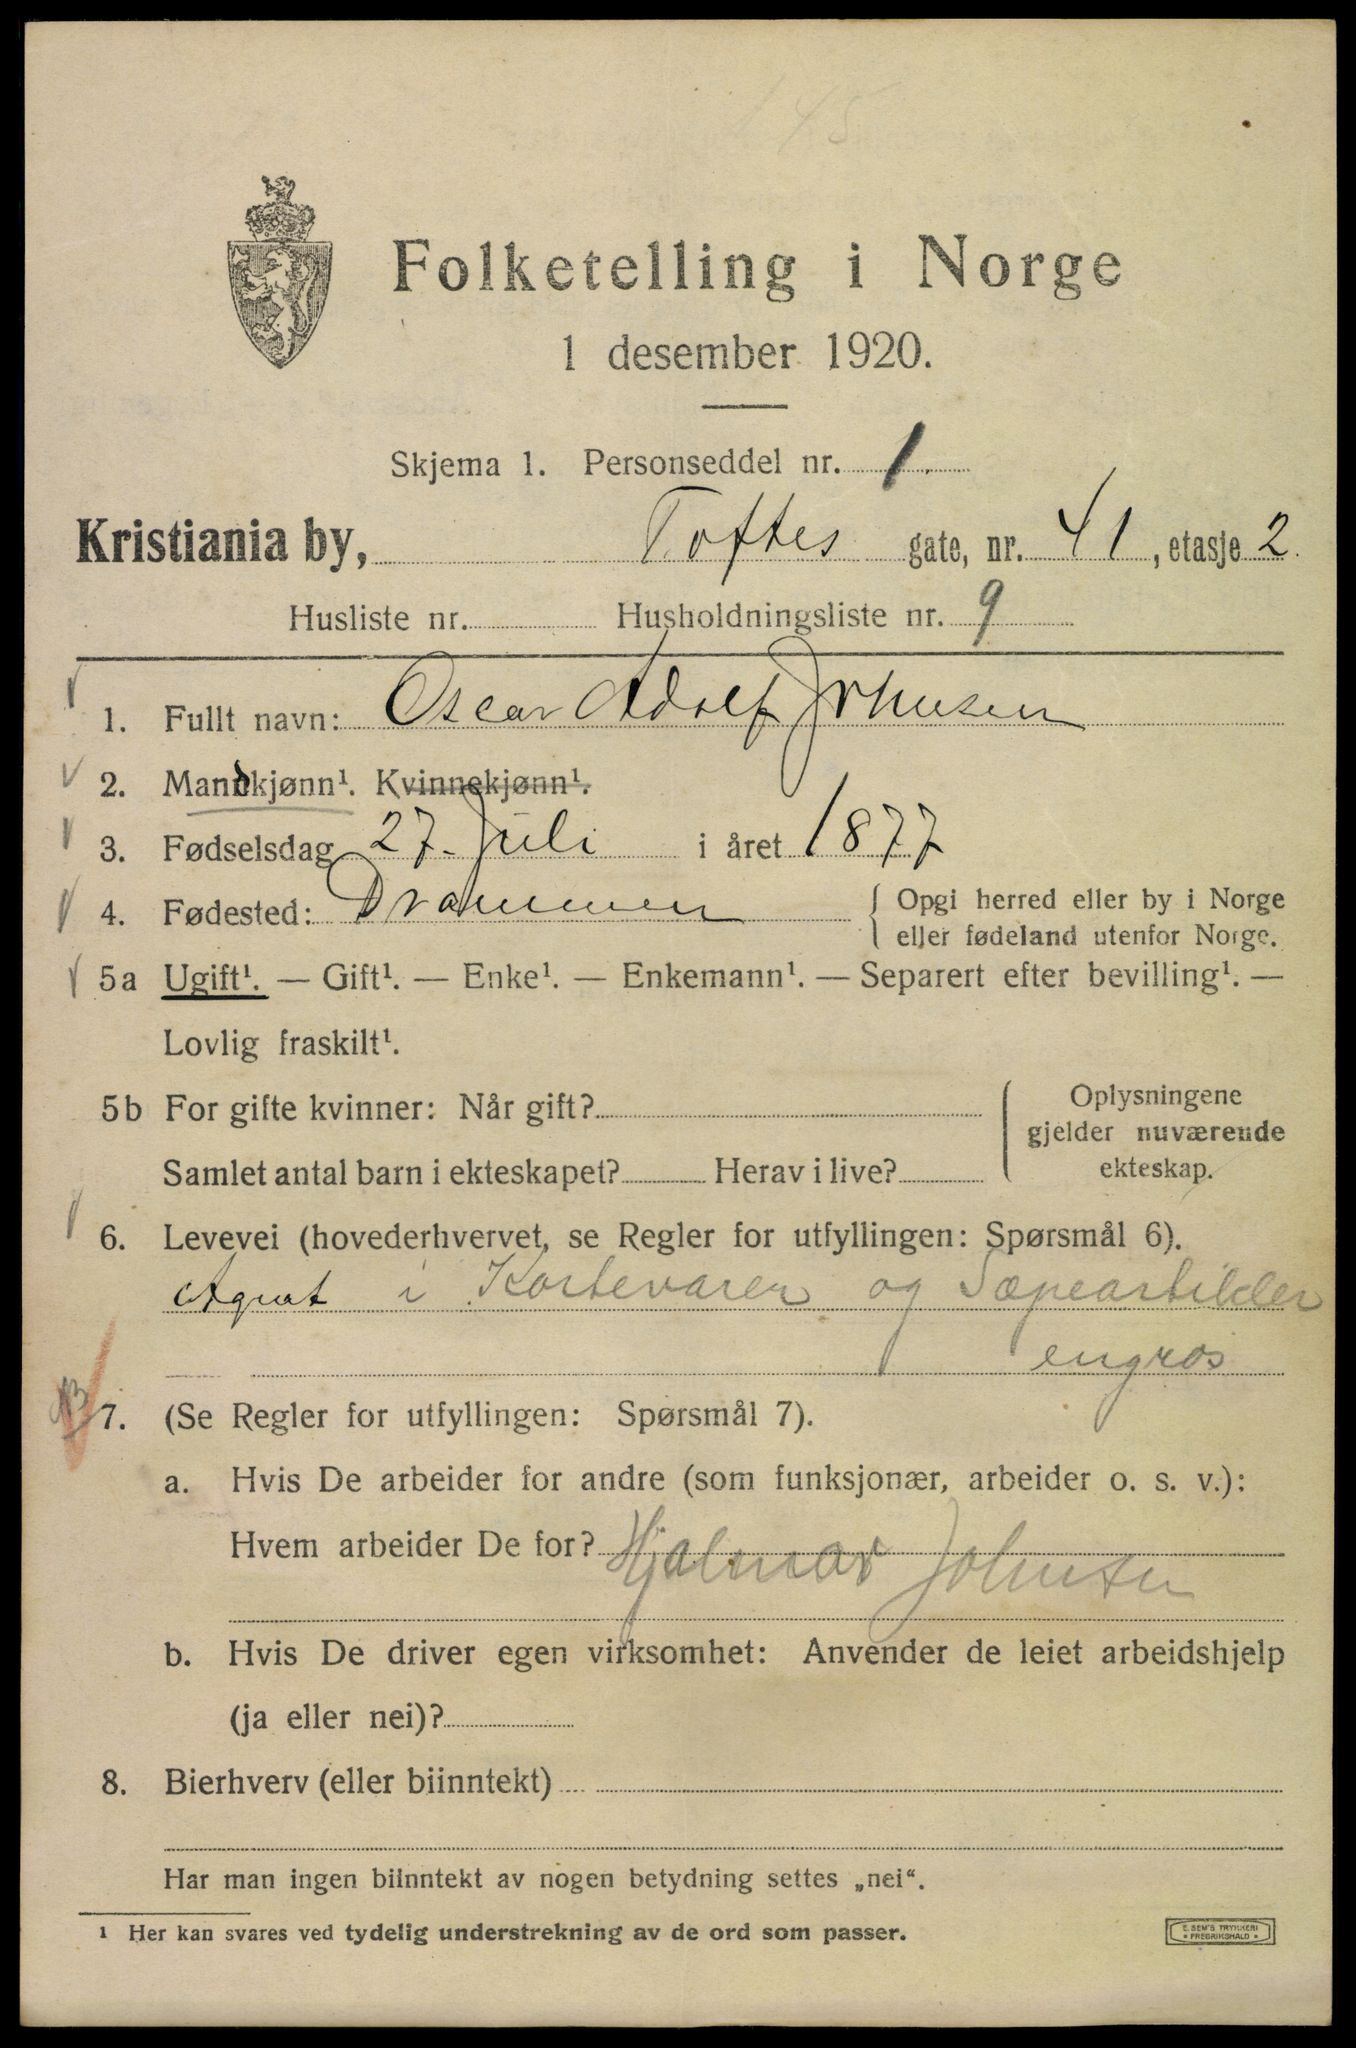 145
Folketelling i Norge
1 desember 1920.
Skjema 1. Personseddel nr. 1
Kristiania by, Toftes gate, nr. 41, etasje 2.
Husliste nr. Husholdningsliste nr. 9
1. Fullt navn: Oscar Adolf Johnsen
2. Mandkjønn¹. Kvinnekjønn¹.
3. Fødselsdag 27. Juli i året 1877
4. Fødested: Drammen
Opgi herred eller by i Norge
eller fødeland utenfor Norge.
5a Ugift¹. — Gift¹. — Enke¹. — Enkemann¹. — Separert efter bevilling¹. —
Lovlig fraskilt¹.
5b For gifte kvinner: Når gift?
Samlet antal barn i ekteskapet? Herav i live?
Oplysningene
gjelder nuværende
ekteskap.
6. Levevei (hovederhvervet, se Regler for utfyllingen: Spørsmål 6).
Agent i Kortevarer og Sæpeartikler
engros
7. (Se Regler for utfyllingen: Spørsmål 7).
a. Hvis De arbeider for andre (som funksjonær, arbeider o. s. v.):
Hvem arbeider De for? Hjalmar Johnsen
b. Hvis De driver egen virksomhet: Anvender de leiet arbeidshjelp
(ja eller nei)?
8. Bierhverv (eller biinntekt)
Har man ingen biinntekt av nogen betydning settes „nei“.
¹ Her kan svares ved tydelig understrekning av de ord som passer.
E. SEM'S TRYKKERI
FREDRIKSHALD